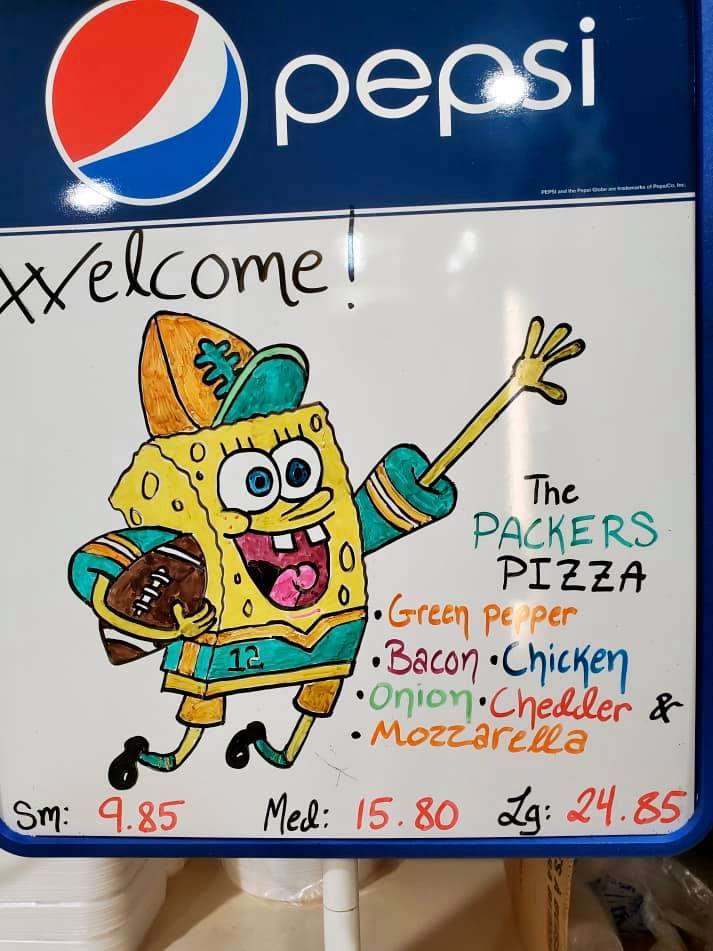 pepsi
PEPSI and the Pepsi Globe are trademarks of PepsiCo, Inc.
Welcome!
The
PACKERS
PIZZA
• Green pepper
• Bacon • Chicken
• Onion • Chedder &
• Mozzarella
12
Sm: 9.85 Med: 15.80 Lg: 24.85